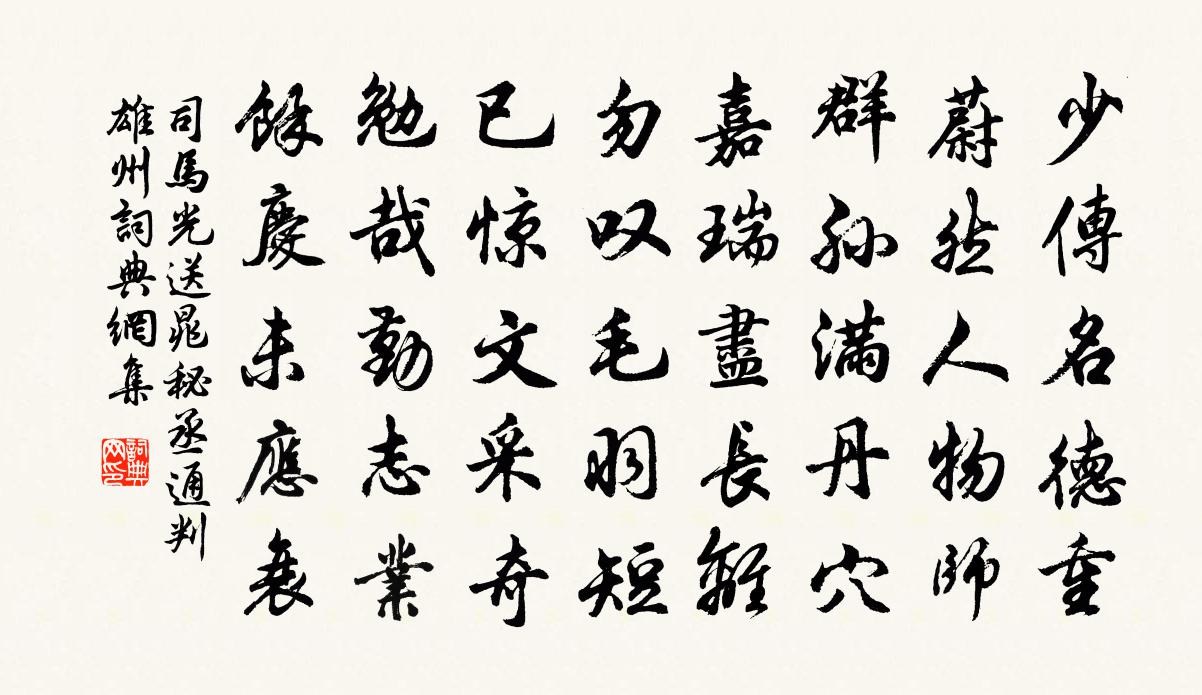 少傅名德重
蔚然人物師
群孫滿丹穴
嘉瑞盡長離
勿叹毛羽短
已惊文采奇
勉哉勤志業
餘慶未應衰
司馬光送晁秘丞通判
雄州詞典網集
詞典网印